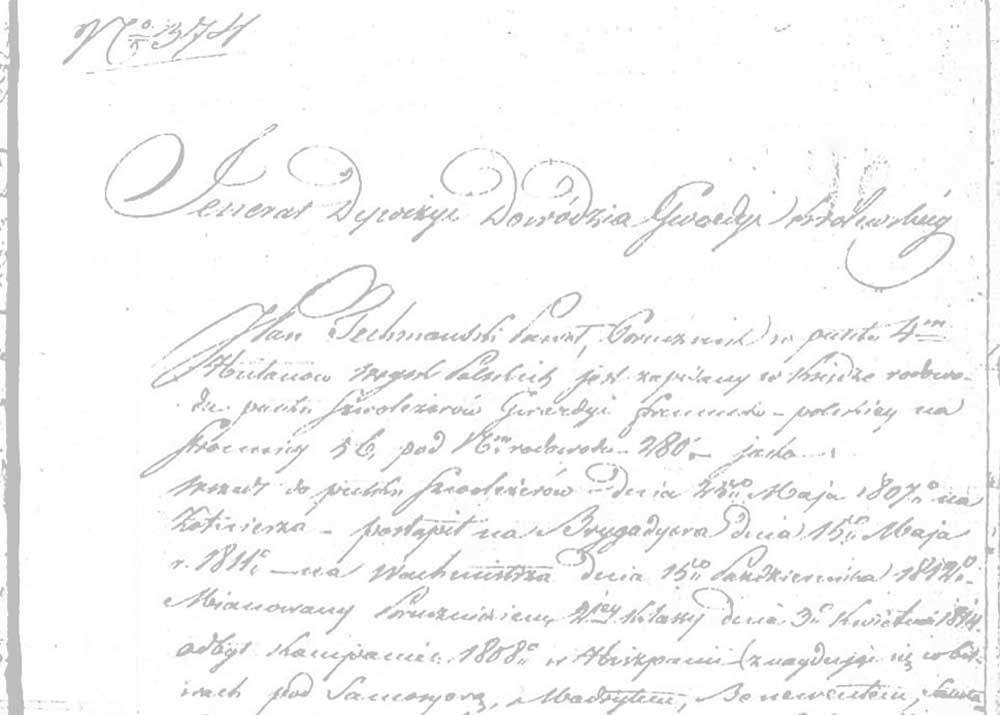 No 1374
Jenerał Dywizyi Dowódzca Gwardyi Królewskiey
Jan Paweł, Porucznik w pułku 4m
Hułanow woysk Polskich jest zapisany w Księdze rodowo-
du pułku Szwoleżerów Gwardyi francusko-polskiey na
stronnicy 56, pod Nm rodowodu 280. jako
wszedł do pułku Szwoleżerów dnia 25go Maja 1807go na
Żołnierza – postąpił na Brygadyera dnia 15go Maja
r. 1811o – na Wachmistrza dnia 15go Października 1812o –
Mianowany Porucznikiem 2iey klassy dnia 3o Kwietnia 1814
odbył kampanie: 1808o w Hiszpanii (znayduiąc się w bit-
wach pod Samosyerą, Madrytem, Benewentem,